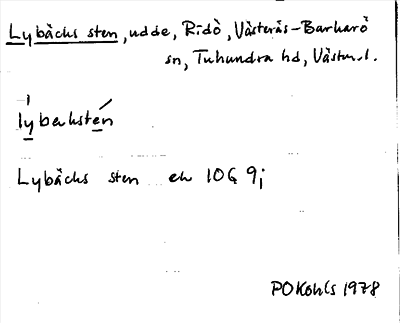 Lybächs sten, udde, Ridö, Västerås-Barkarö
sn, Tuhundra hd, Västm.l.
lybeksten
Lybächs sten ek 10G 9i
POKohls 1978